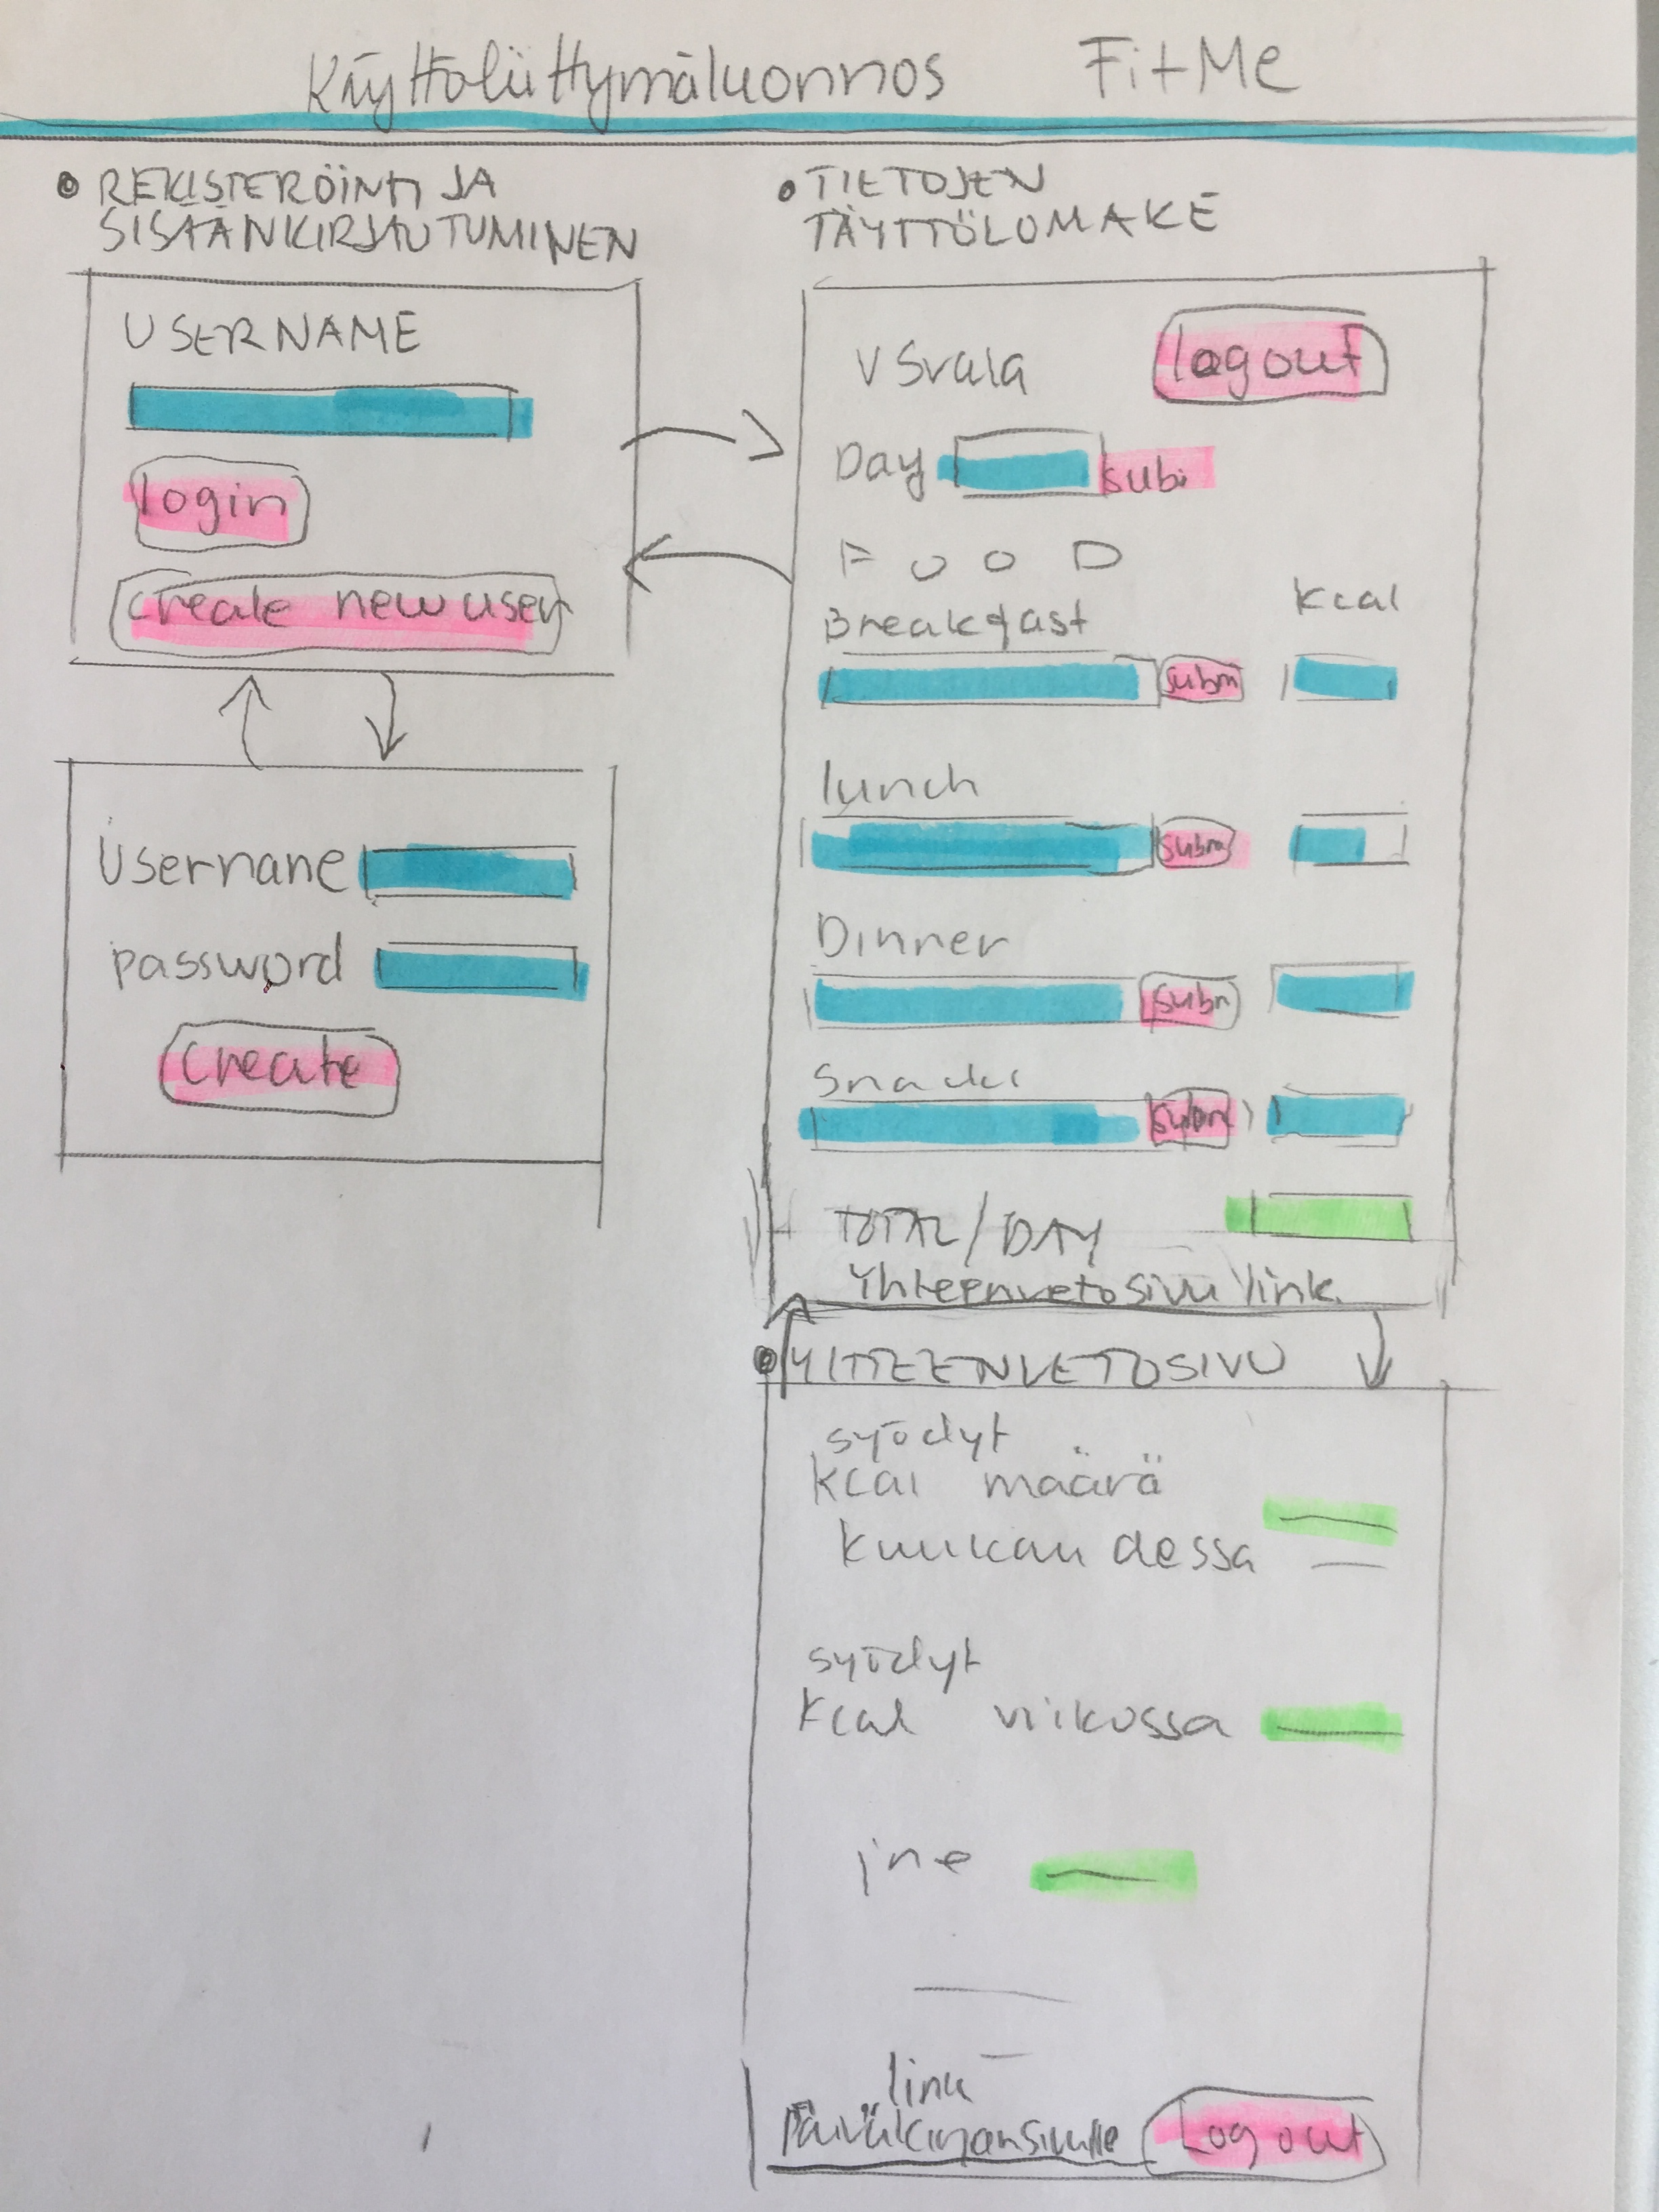 Käyttöliittymäluonnos FitMe
REKISTERÖINTI JA
SISÄÄNKIRJAUTUMINEN
USERNAME
login
create new user
Usernane
password
create
TIETOJEN
TÄYTTÖLOMAKE
logout
Day subi
FOOD
kcal
Breakfast
subm
lunch
subm
Dinner
subm
subm
TOTAL/DAY
Yhteenvetosivu link
YHTEENVETOSIVU
syödyt
kcal määrä
kuukaudessa
syödyt
kcal viikossa
jne
link
Päiväkirjansivulle Log out